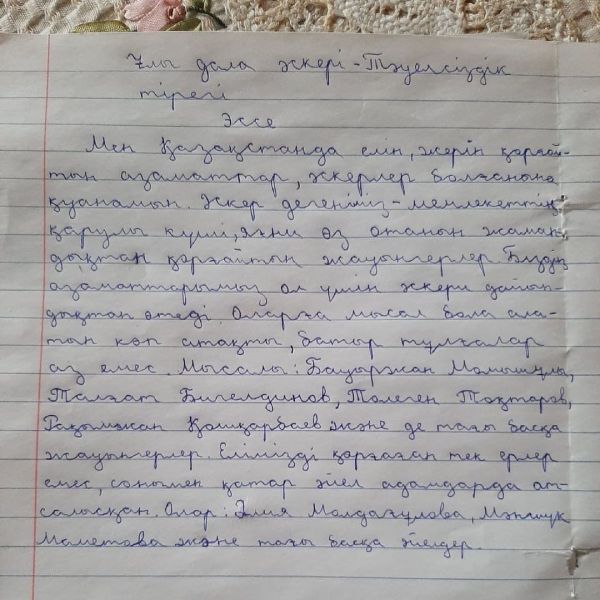 Ұлы дала әскері - Тәуелсіздік
тірегі
Эссе
Мен Қазақстанда елін, жерін қорғай-
тын азаматтар, әскерлер болғанына
қуанамын. Әскер дегеніміз - мемлекеттің
қарулы күші, яғни өз отанын жаман-
дықтан қорғайтын жауынгерлер. Біздің
азаматтарымыз ол үшін әскери дайын-
дықтан өтеді. Оларға мысал бола ала-
тын көп атақты, батыр тұлғалар
аз емес. Мысалы: Бауыржан Момышұлы,
Талғат Бигелдинов, Төлеген Тоқтаров,
Рақымжан Қошқарбаев және де тағы басқа
жауынгерлер. Елімізді қорғаған тек ерлер
емес, сонымен қатар әйел адамдарда ат-
салысқан. Олар: Әлия Молдағұлова, Мәншүк
Маметова және тағы басқа әйелдер.